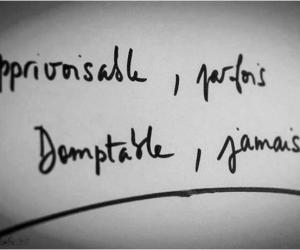 pprivoisable, parfois
Domptable, jamais